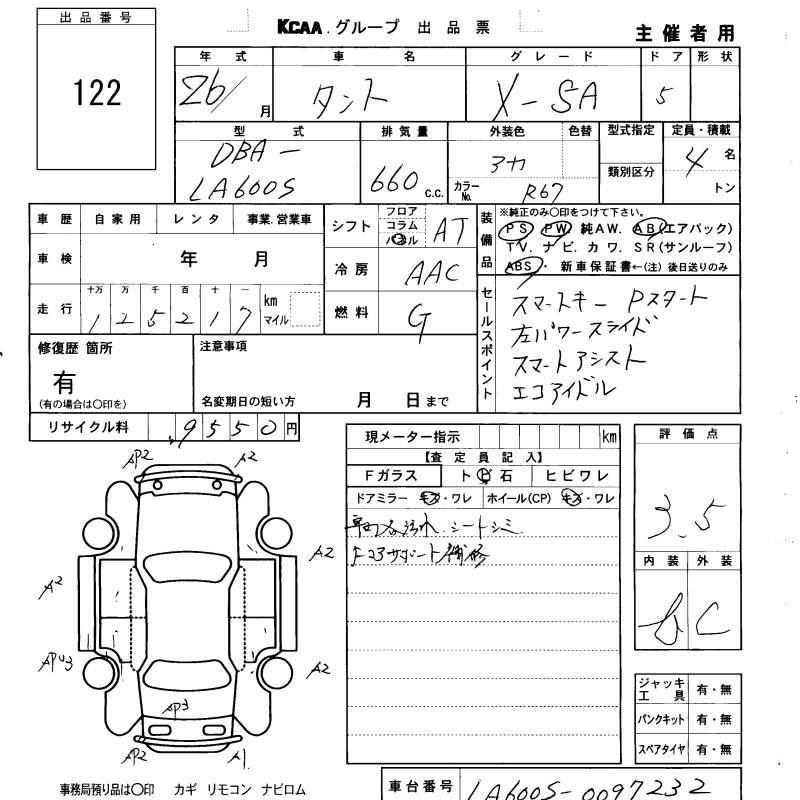 出品番号
122
KCAA.グループ 出品票
主催者用
年式 車名 グレード ドア 形状
26/ 月 タント X-SA 5
型式 排気量 外装色 色替 型式指定 定員・積載
DBA-
LA600S
660 c.c.
アカ
カラーNo. R67
類別区分
4 名
トン
車歴 自家用 レンタ 事業.営業車
車検 年 月
走行 十万 万 千 百 十 一
125217 km マイル
シフト フロア コラム パネル AT
冷房 AAC
燃料 G
装備品
※純正のみ〇印をつけて下さい。
PS PW 純AW. AB(エアバッグ)
TV. ナビ. カワ. SR(サンルーフ)
ABS・ 新車保証書←(注) 後日送りのみ
セールスポイント
スマートキー Pスタート
左パワースライド
スマートアシスト
エコアイドル
修復歴 箇所
有
(有の場合は〇印を)
注意事項
名変期日の短い方 月 日まで
リサイクル料 9550円
現メーター指示 km
【査定員記入】
Fガラス トビ石 ヒビワレ
ドアミラー キズ・ワレ ホイール(CP) キズ・ワレ
シートシミ
サポート補修
評価点
3.5
内装 外装
C
ジャッキ工具 有・無
パンクキット 有・無
スペアタイヤ 有・無
AP2 A2
A2
A2
APU3
A2
AP3
AP2 A1
事務局預り品は〇印 カギ リモコン ナビロム
車台番号 LA600S-0097232